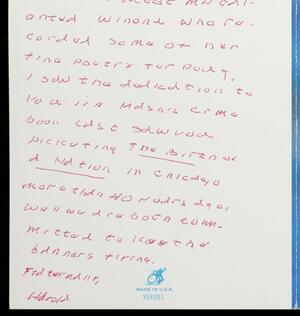 anted Winona who re-
corded some of her
fine poetry for Pody,
I saw the dedication to
you in
book last saw you
picketing The Birth of
a Nation in Chicago
more than 40 years ago,
Well we are both com-
mitted to keep the
banners flying.
Fraternally,
Harold
MADE IN U.S.A.
35X881